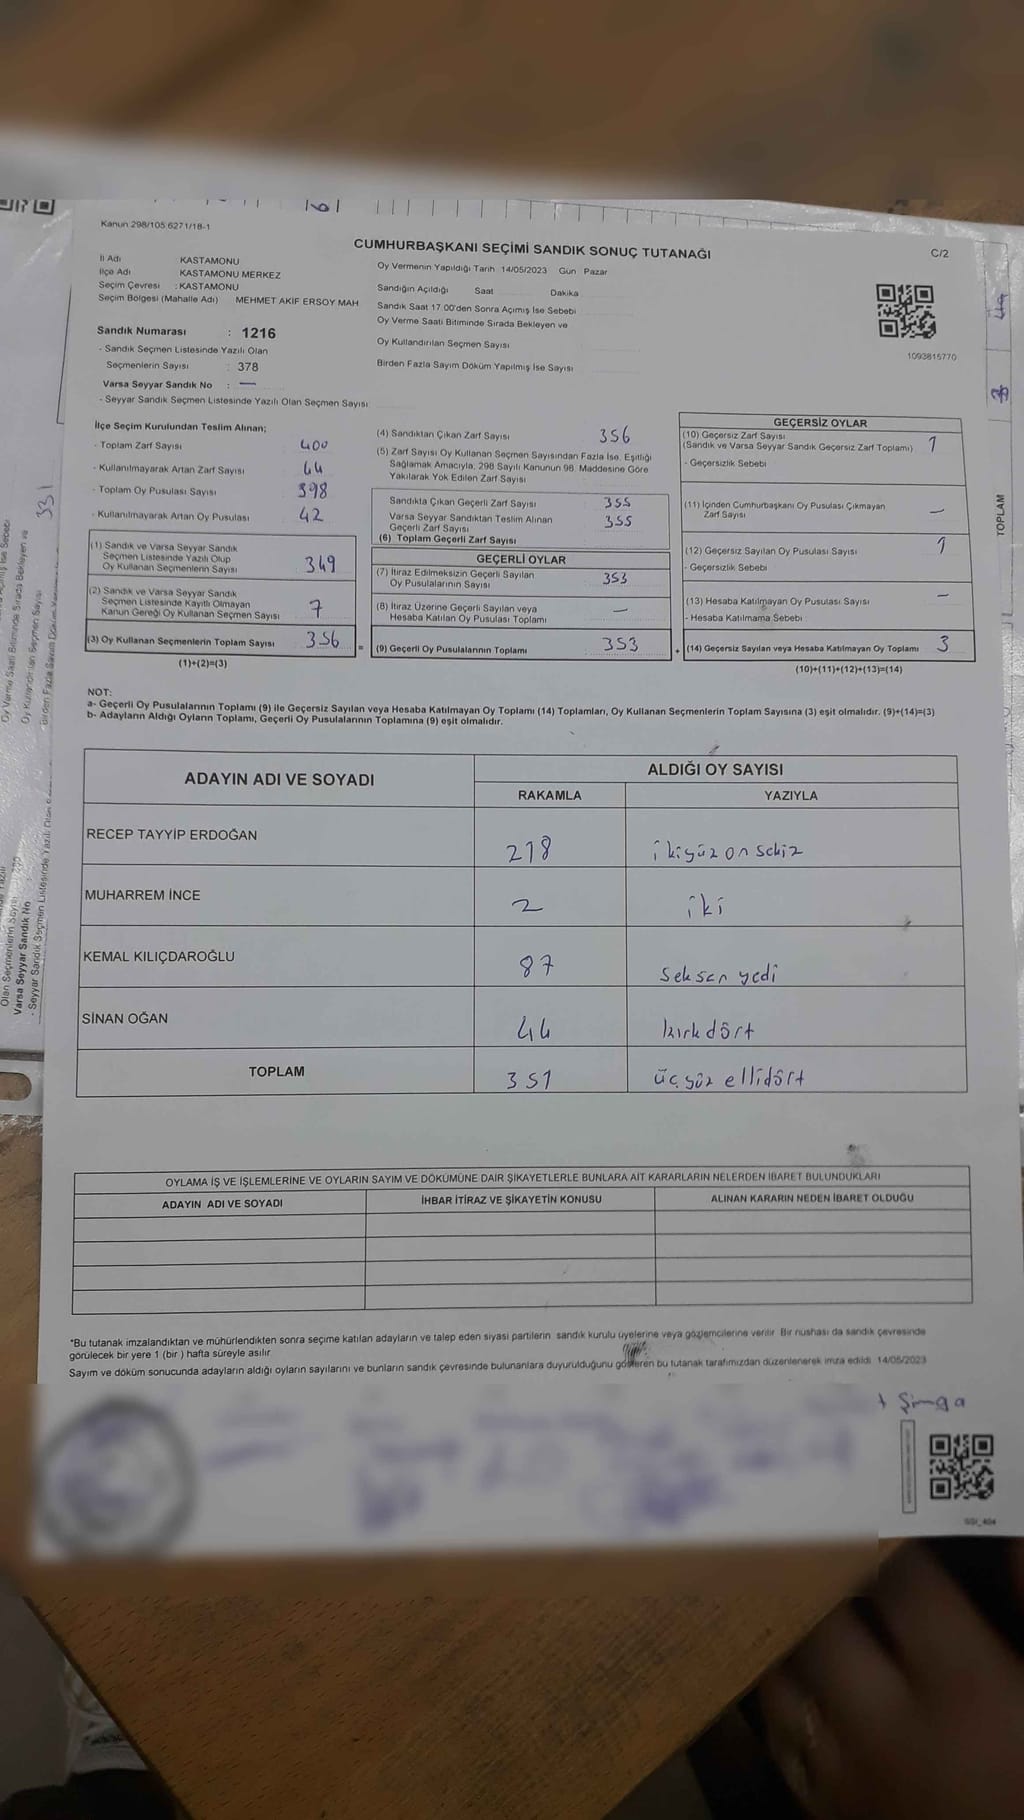 Kanun 298/105 6271/18-1
CUMHURBAŞKANI SEÇİMİ SANDIK SONUÇ TUTANAĞI
C/2
İl Adı KASTAMONU
İlçe Adı KASTAMONU MERKEZ
Seçim Çevresi : KASTAMONU
Seçim Bölgesi (Mahalle Adı) MEHMET AKİF ERSOY MAH
Sandık Numarası : 1216
- Sandık Seçmen Listesinde Yazılı Olan
Seçmenlerin Sayısı : 378
Varsa Seyyar Sandık No : —
- Seyyar Sandık Seçmen Listesinde Yazılı Olan Seçmen Sayısı
Oy Vermenin Yapıldığı Tarih 14/05/2023 Gün Pazar
Sandığın Açıldığı Saat Dakika
Sandık Saat 17.00'den Sonra Açımış İse Sebebi
Oy Verme Saati Bitiminde Sırada Bekleyen ve
Oy Kullandırılan Seçmen Sayısı
Birden Fazla Sayım Döküm Yapılmış İse Sayısı
1093815770
İlçe Seçim Kurulundan Teslim Alınan;
- Toplam Zarf Sayısı 400
- Kullanılmayarak Artan Zarf Sayısı 44
- Toplam Oy Pusulası Sayısı 398
- Kullanılmayarak Artan Oy Pusulası 42
(1) Sandık ve Varsa Seyyar Sandık
Seçmen Listesinde Yazılı Olup
Oy Kullanan Seçmenlerin Sayısı 349
(2) Sandık ve Varsa Seyyar Sandık
Seçmen Listesinde Kayıtlı Olmayan
Kanun Gereği Oy Kullanan Seçmen Sayısı 7
(3) Oy Kullanan Seçmenlerin Toplam Sayısı 356 =
(1)+(2)=(3)
(4) Sandıktan Çıkan Zarf Sayısı 356
(5) Zarf Sayısı Oy Kullanan Seçmen Sayısından Fazla İse, Eşitliği
Sağlamak Amacıyla, 298 Sayılı Kanunun 98. Maddesine Göre
Yakılarak Yok Edilen Zarf Sayısı
Sandıkta Çıkan Geçerli Zarf Sayısı 355
Varsa Seyyar Sandıktan Teslim Alınan 355
Geçerli Zarf Sayısı
(6) Toplam Geçerli Zarf Sayısı
GEÇERLİ OYLAR
(7) İtiraz Edilmeksizin Geçerli Sayılan
Oy Pusulalarının Sayısı 353
(8) İtiraz Üzerine Geçerli Sayılan veya
Hesaba Katılan Oy Pusulası Toplamı —
(9) Geçerli Oy Pusulalarının Toplamı 353 +
GEÇERSİZ OYLAR
(10) Geçersiz Zarf Sayısı
(Sandık ve Varsa Seyyar Sandık Geçersiz Zarf Toplamı) 1
- Geçersizlik Sebebi
(11) İçinden Cumhurbaşkanı Oy Pusulası Çıkmayan
Zarf Sayısı —
(12) Geçersiz Sayılan Oy Pusulası Sayısı 1
- Geçersizlik Sebebi
(13) Hesaba Katılmayan Oy Pusulası Sayısı —
- Hesaba Katılmama Sebebi
(14) Geçersiz Sayılan veya Hesaba Katılmayan Oy Toplamı 3
(10)+(11)+(12)+(13)=(14)
NOT:
a- Geçerli Oy Pusulalarının Toplamı (9) ile Geçersiz Sayılan veya Hesaba Katılmayan Oy Toplamı (14) Toplamları, Oy Kullanan Seçmenlerin Toplam Sayısına (3) eşit olmalıdır. (9)+(14)=(3)
b- Adayların Aldığı Oyların Toplamı, Geçerli Oy Pusulalarının Toplamına (9) eşit olmalıdır.
ADAYIN ADI VE SOYADI
ALDIĞI OY SAYISI
RAKAMLA YAZIYLA
RECEP TAYYİP ERDOĞAN 218 ikiyüz on sekiz
MUHARREM İNCE 2 iki
KEMAL KILIÇDAROĞLU 87 seksen yedi
SİNAN OĞAN 44 kırk dört
TOPLAM 351 üçyüz ellidört
OYLAMA İŞ VE İŞLEMLERİNE VE OYLARIN SAYIM VE DÖKÜMÜNE DAİR ŞİKAYETLERLE BUNLARA AİT KARARLARIN NELERDEN İBARET BULUNDUKLARI
ADAYIN ADI VE SOYADI İHBAR İTİRAZ VE ŞİKAYETİN KONUSU ALINAN KARARIN NEDEN İBARET OLDUĞU
*Bu tutanak imzalandıktan ve mühürlendikten sonra seçime katılan adayların ve talep eden siyasi partilerin sandık kurulu üyelerine veya gözlemcilerine verilir. Bir nüshası da sandık çevresinde
görülecek bir yere 1 (bir) hafta süreyle asılır
Sayım ve döküm sonucunda adayların aldığı oyların sayılarını ve bunların sandık çevresinde bulunanlara duyurulduğunu gösteren bu tutanak tarafımızdan düzenlenerek imza edildi 14/05/2023
TOPLAM
331
Oy Verme Saati Bitiminde Sırada Bekleyen ve
Oy Kullandırılan Seçmen Sayısı
Varsa Seyyar Sandık No